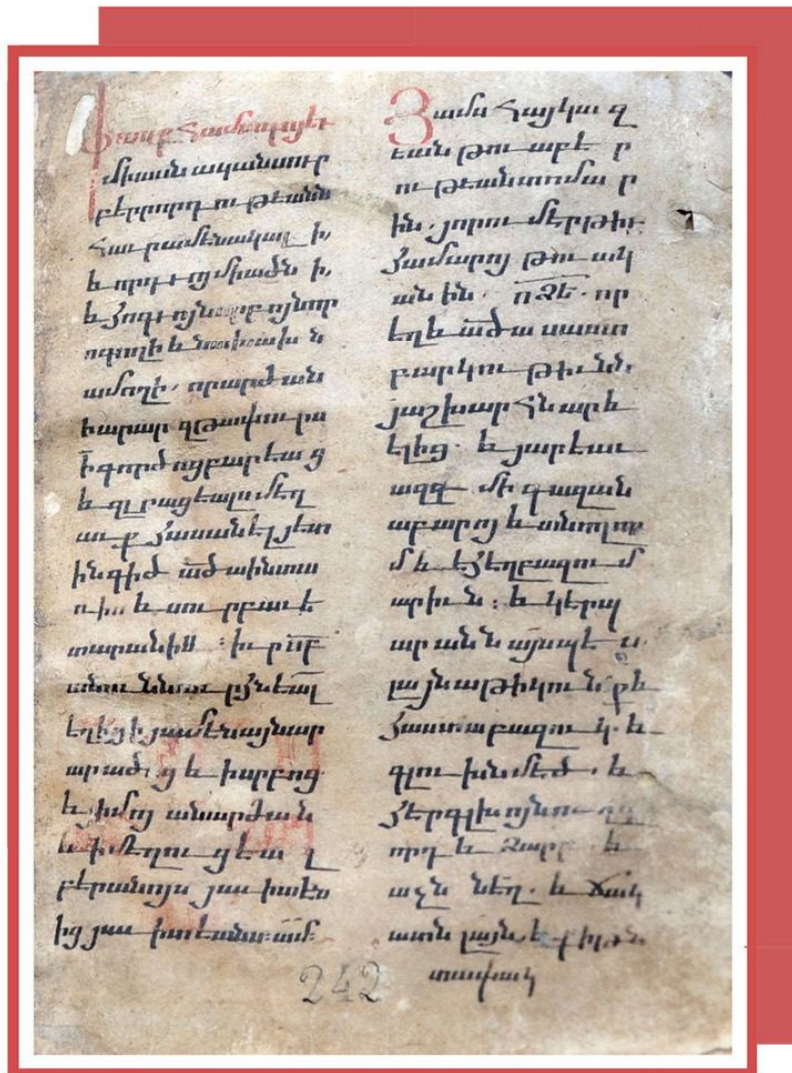 Փառք համագոյէ
միասնական
երրորդութեանն
հաւր ամենակալի,
և որդւոյ միածնի,
և հոգւոյն սրբոյ նոր
ոգողի և նախախն
ամողի. որ արժան
իարար զթափուրս
ի գործոց բարեաց
և զլքացեալս մեղ
աւք հասանել յետ
ին գիծ ած
և սուրբ աւե
տարանիս :
եղիցի յամենայն ար
արածոց և ի սրբոց
և յիմոյ անարժան
և ի մեղուցեալ
բերանոյս յաւիտեն
ից յաւիտեանս. ամէն
Յամս հայկազ
եան թուաբեր
ութեան տումար
ին. յորում երթիւ
համարոյ թուակ
անին. ՈՁԵ. որ
եղև ածասաստ
բարկութիւնն,
յաշխարհն արև
ելից. և յարեաւ
ազգ մի գազան
աբարոյ և անողոր
մ և եհեղ բազում
արիւն : և կերպ
արանն այսպէս.
լայնաթիկունք և
հաստաբազուկ. և
գլուխն մեծ. և
հեր գլխոյն
որդ և ձարր. և
աչն նեղ. և ճակ
ատն լայն և քիթն
տափակ
242